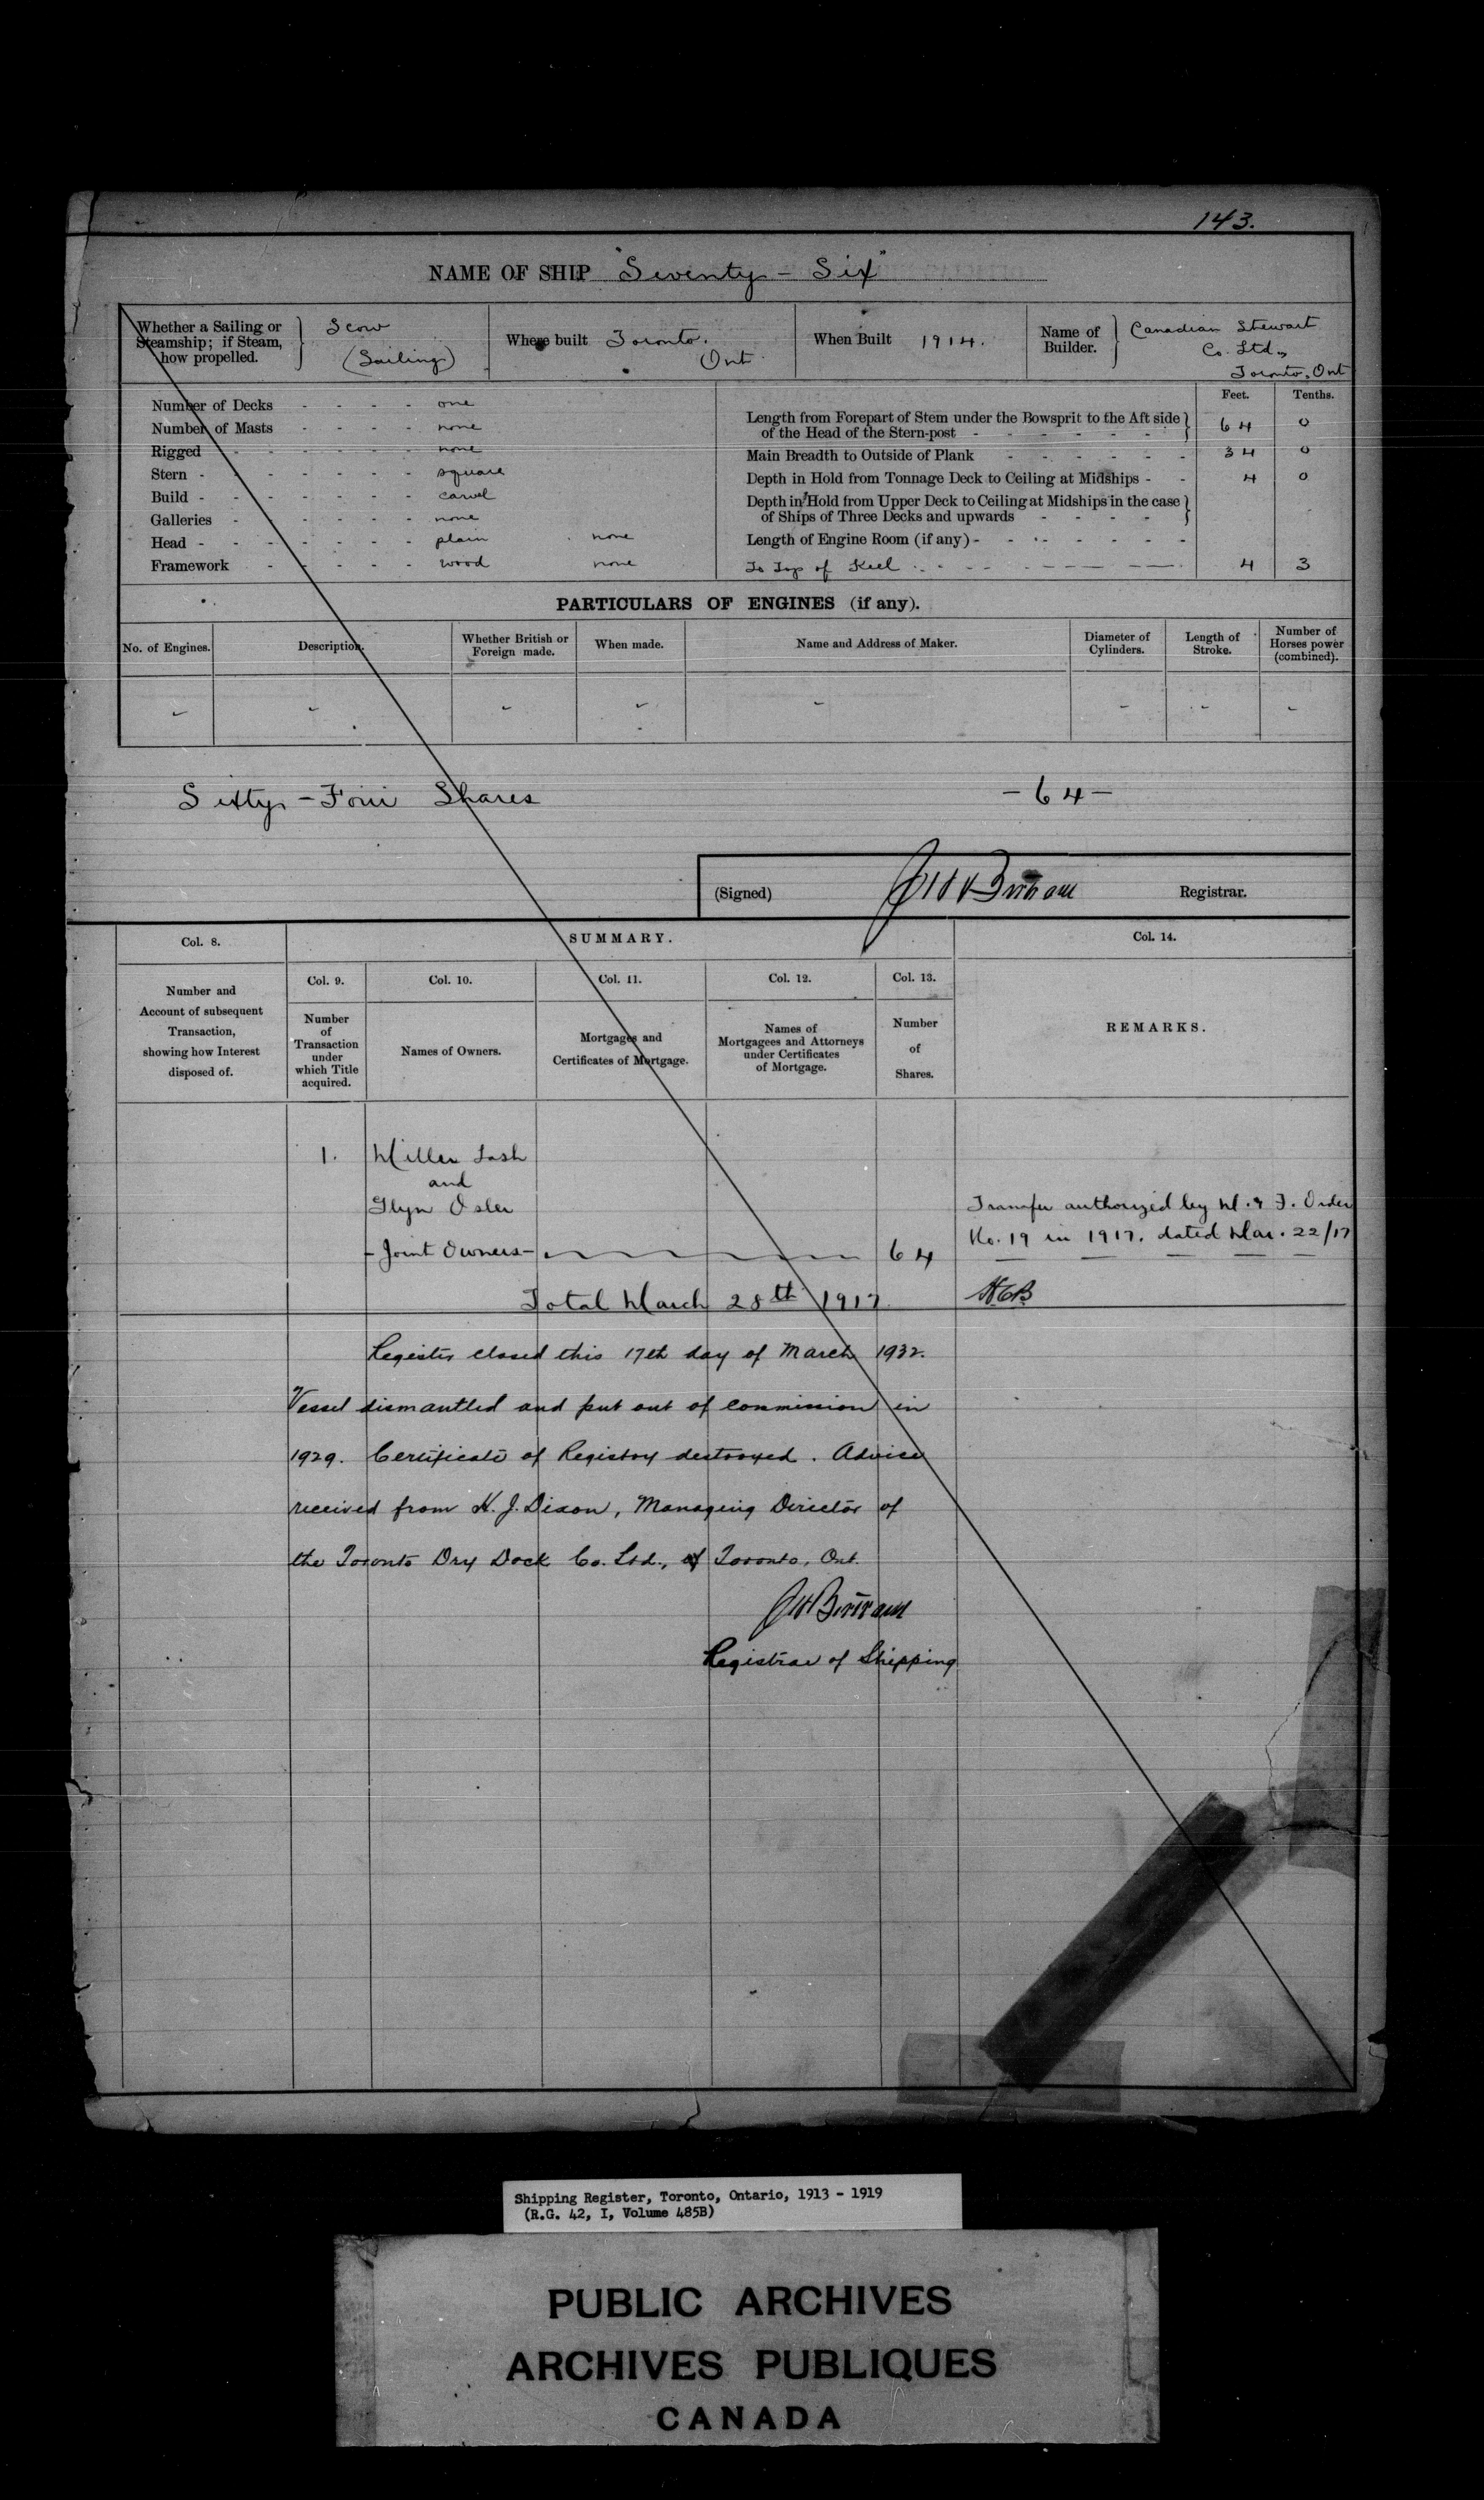 143.
NAME OF SHIP "Seventy - Six"
Whether a Sailing or Steamship; if Steam, how propelled. Scow (Sailing)
Where built Toronto. Ont
When Built 1914.
Name of Builder. Canadian Stewart Co. Ltd., Toronto, Ont
Feet. Tenths.
Number of Decks - - - - one
Number of Masts - - - - none
Rigged - - - - - none
Stern - - - - - - square
Build - - - - - - carvel
Galleries - - - - - none
Head - - - - - - plain none
Framework - - - - wood none
Length from Forepart of Stem under the Bowsprit to the Aft side
of the Head of the Stern-post - - - - - - 64 0
Main Breadth to Outside of Plank - - - - - - 34 0
Depth in Hold from Tonnage Deck to Ceiling at Midships - - 4 0
Depth in Hold from Upper Deck to Ceiling at Midships in the case
of Ships of Three Decks and upwards - - - - -
Length of Engine Room (if any) - - - - - - -
To Top of Keel - - - - - - 4 3
PARTICULARS OF ENGINES (if any).
No. of Engines. Description. Whether British or Foreign made. When made. Name and Address of Maker. Diameter of Cylinders. Length of Stroke. Number of Horses power (combined).
Sixty - Four Shares - 64 -
(Signed) Registrar.
Col. 8. SUMMARY. Col. 14.
Number and
Account of subsequent
Transaction,
showing how Interest
disposed of.
Col. 9. Col. 10. Col. 11. Col. 12. Col. 13.
Number
of
Transaction
under
which Title
acquired.
Names of Owners.
Mortgages and
Certificates of Mortgage.
Names of
Mortgagees and Attorneys
under Certificates
of Mortgage.
Number
of
Shares.
REMARKS.
1. Miller Lash
and
Glyn Osler
- Joint Owners - 64
Transfer authorized by M. & F. Order
No. 19 in 1917. dated Mar. 22/17
Total March 28th 1917
Register closed this 17th day of March 1932.
Vessel dismantled and put out of commission in
1929. Certificate of Registry destroyed. Advice
received from H. J. Dixon, Managing Director of
the Toronto Dry Dock Co. Ltd., of Toronto, Ont.
Registrar of Shipping
Shipping Register, Toronto, Ontario, 1913 - 1919
(R.G. 42, I, Volume 485B)
PUBLIC ARCHIVES
ARCHIVES PUBLIQUES
CANADA